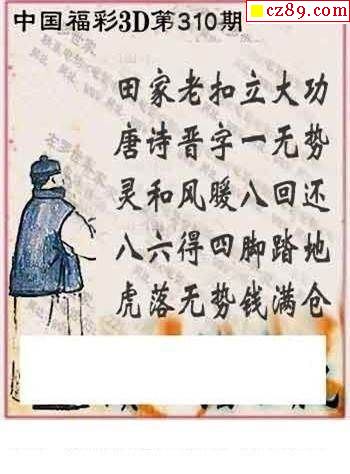 cz89.com
中国福彩3D第310期
田家老扣立大功
唐诗晋字一无势
灵和风暖八回还
八六得四脚踏地
虎落无势钱满仓